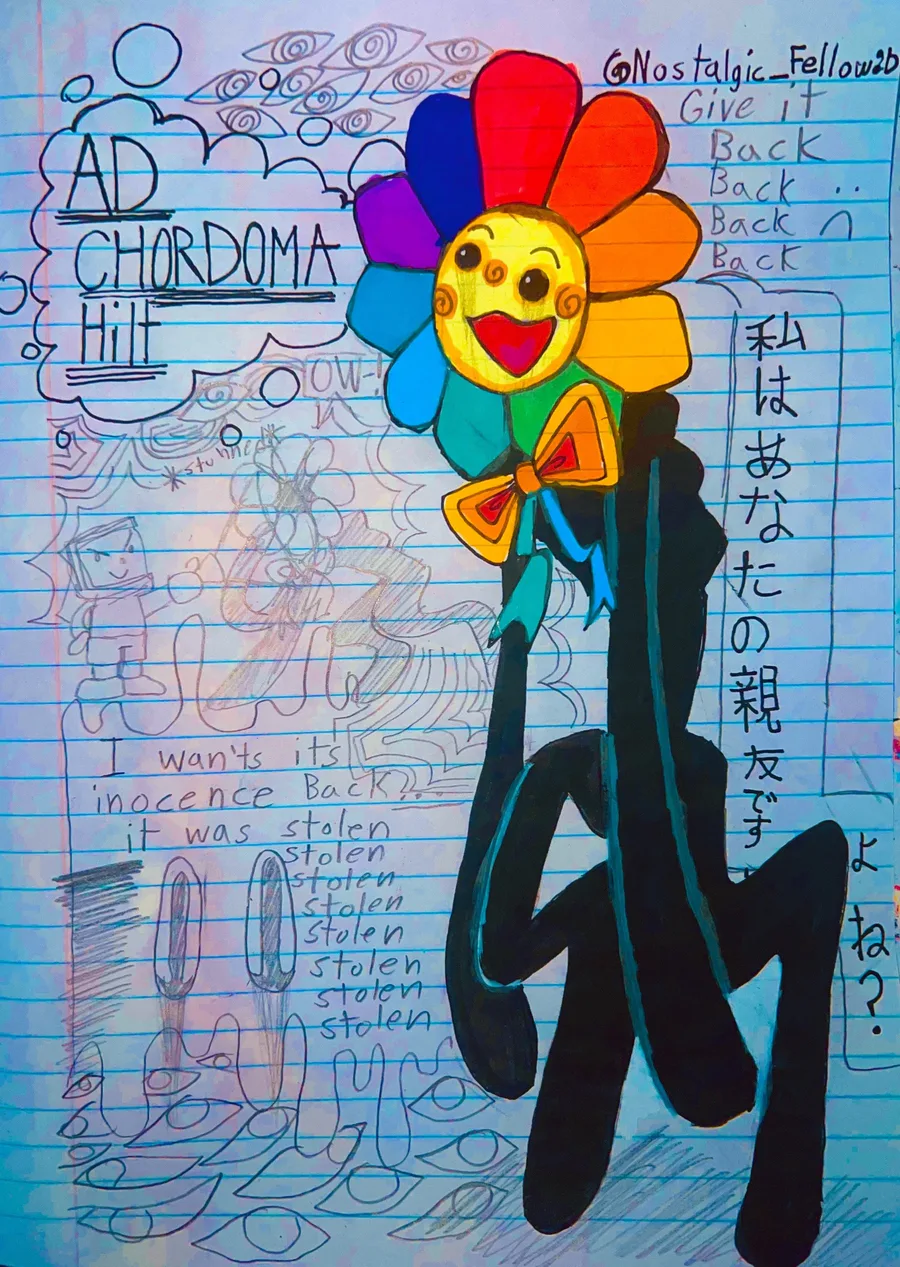 @Nostalgic_Fellow2b
Give it
Back
Back
Back
Back
AD
CHORDOMA
Hilt
OW-!
*stunned*
私はあなたの親友です
よね?
I wan'ts its
inocence Back...
it was stolen
stolen
stolen
stolen
stolen
stolen
stolen
stolen